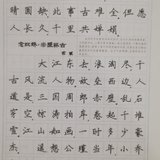 缺此事古全但愿
人长久千里共婵娟
念奴娇·赤壁怀古
苏轼
大江东去浪淘尽千
古风流人物故垒西边人
道是三国周郎赤壁乱石
穿空惊涛拍岸卷起千堆
雪江山如画一时多少豪